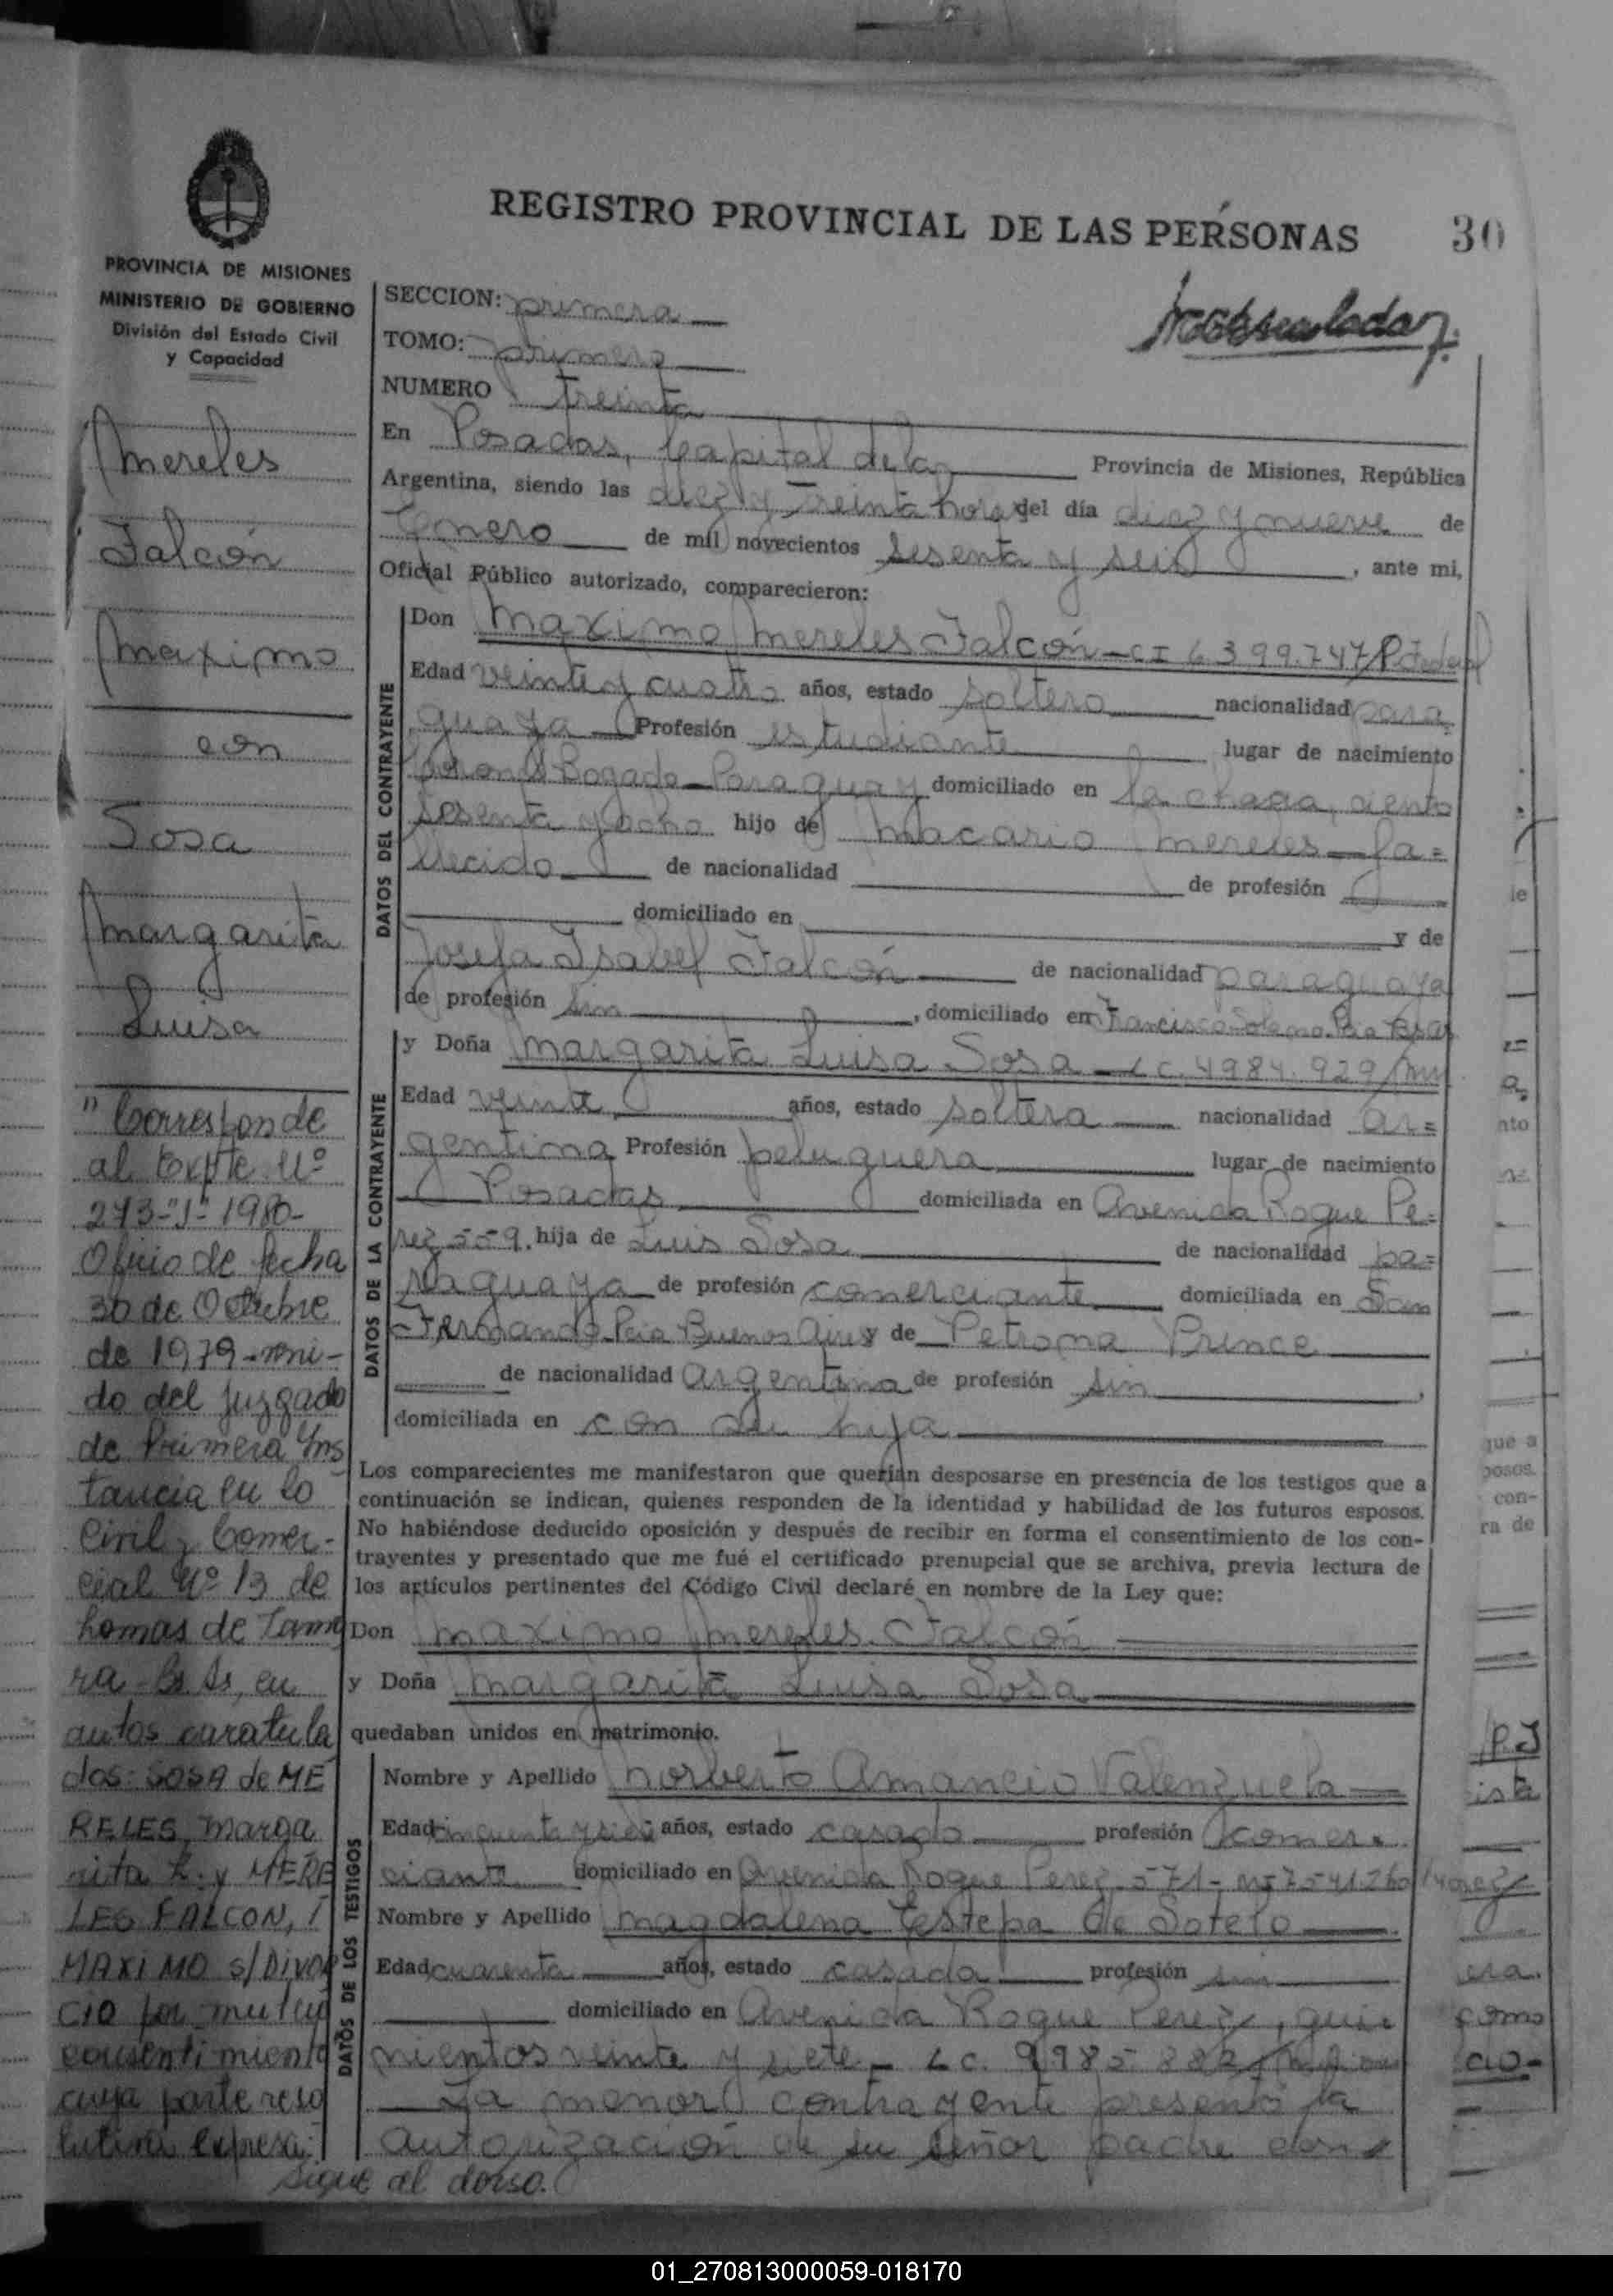 REGISTRO PROVINCIAL DE LAS PERSONAS
30
PROVINCIA DE MISIONES
MINISTERIO DE GOBIERNO
División del Estado Civil
y Capacidad
Mereles
Falcón
Maximo
con
Sosa
Margarita
Luisa
"Corresponde
al Expte. Nº
273-"J"-1980-
Oficio de fecha
30 de Octubre
de 1979-veni-
do del Juzgado
de Primera Ins
tancia en lo
Civil y Comer-
cial Nº 13 de
Lomas de Zamo
ra-Bs. As, en
autos caratula
dos: SOSA de ME
RELES, Marga
rita L. y MERE
LES FALCON,
MAXIMO s/DIVOR
CIO por mutuo
consentimiento
cuya parte reso
lutiva expresa:
Sigue al dorso.
SECCION: primera
TOMO: primero
NUMERO treinta
En Posadas, Capital de la Provincia de Misiones, República
Argentina, siendo las diez y treinta horas del día diez y nueve de
Enero de mil novecientos sesenta y seis, ante mi,
Oficial Público autorizado, comparecieron:
DATOS DEL CONTRAYENTE
Don Maximo Mereles Falcón-CI 6399.747/P. Federal
Edad veinte y cuatro años, estado soltero nacionalidad para
guaya Profesión estudiante lugar de nacimiento
Coronel Bogado-Paraguay domiciliado en la chaca, ciento
sesenta y ocho hijo de Macario Mereles-fa=
llecido de nacionalidad de profesión
domiciliado en y de
Josefa Isabel Falcón de nacionalidad paraguaya
de profesión sin, domiciliado en Francisco Solano. Pcia Bs As
DATOS DE LA CONTRAYENTE
y Doña Margarita Luisa Sosa-LC. 4984.929/Mis
Edad veinte años, estado soltera nacionalidad ar=
gentina Profesión peluquera lugar de nacimiento
Posadas domiciliada en Avenida Roque Pe=
rez 559. hija de Luis Sosa de nacionalidad pa=
raguaya de profesión comerciante domiciliada en San
Fernando. Pcia Buenos Aires y de Petrona Prince
de nacionalidad argentina de profesión sin,
domiciliada en con su hija
Los comparecientes me manifestaron que querían desposarse en presencia de los testigos que a
continuación se indican, quienes responden de la identidad y habilidad de los futuros esposos.
No habiéndose deducido oposición y después de recibir en forma el consentimiento de los con-
trayentes y presentado que me fué el certificado prenupcial que se archiva, previa lectura de
los artículos pertinentes del Código Civil declaré en nombre de la Ley que:
Don Maximo Mereles Falcón
y Doña Margarita Luisa Sosa
quedaban unidos en matrimonio.
DATOS DE LOS TESTIGOS
Nombre y Apellido Norberto Amancio Valenzuela
Edad cincuenta y años, estado casado profesión comer=
ciante domiciliado en Avenida Roque Perez 571-
Nombre y Apellido Magdalena Estepa de Sotelo
Edad cuarenta años, estado casada profesión sin
domiciliado en Avenida Roque Perez, qui
nientos veinte y siete- LC. 9985 882
La menor contrayente presentó la
autorización de su señor padre con
le
nto
que a
posos.
con-
ra de
era.
como
cio-
01_270813000059-018170